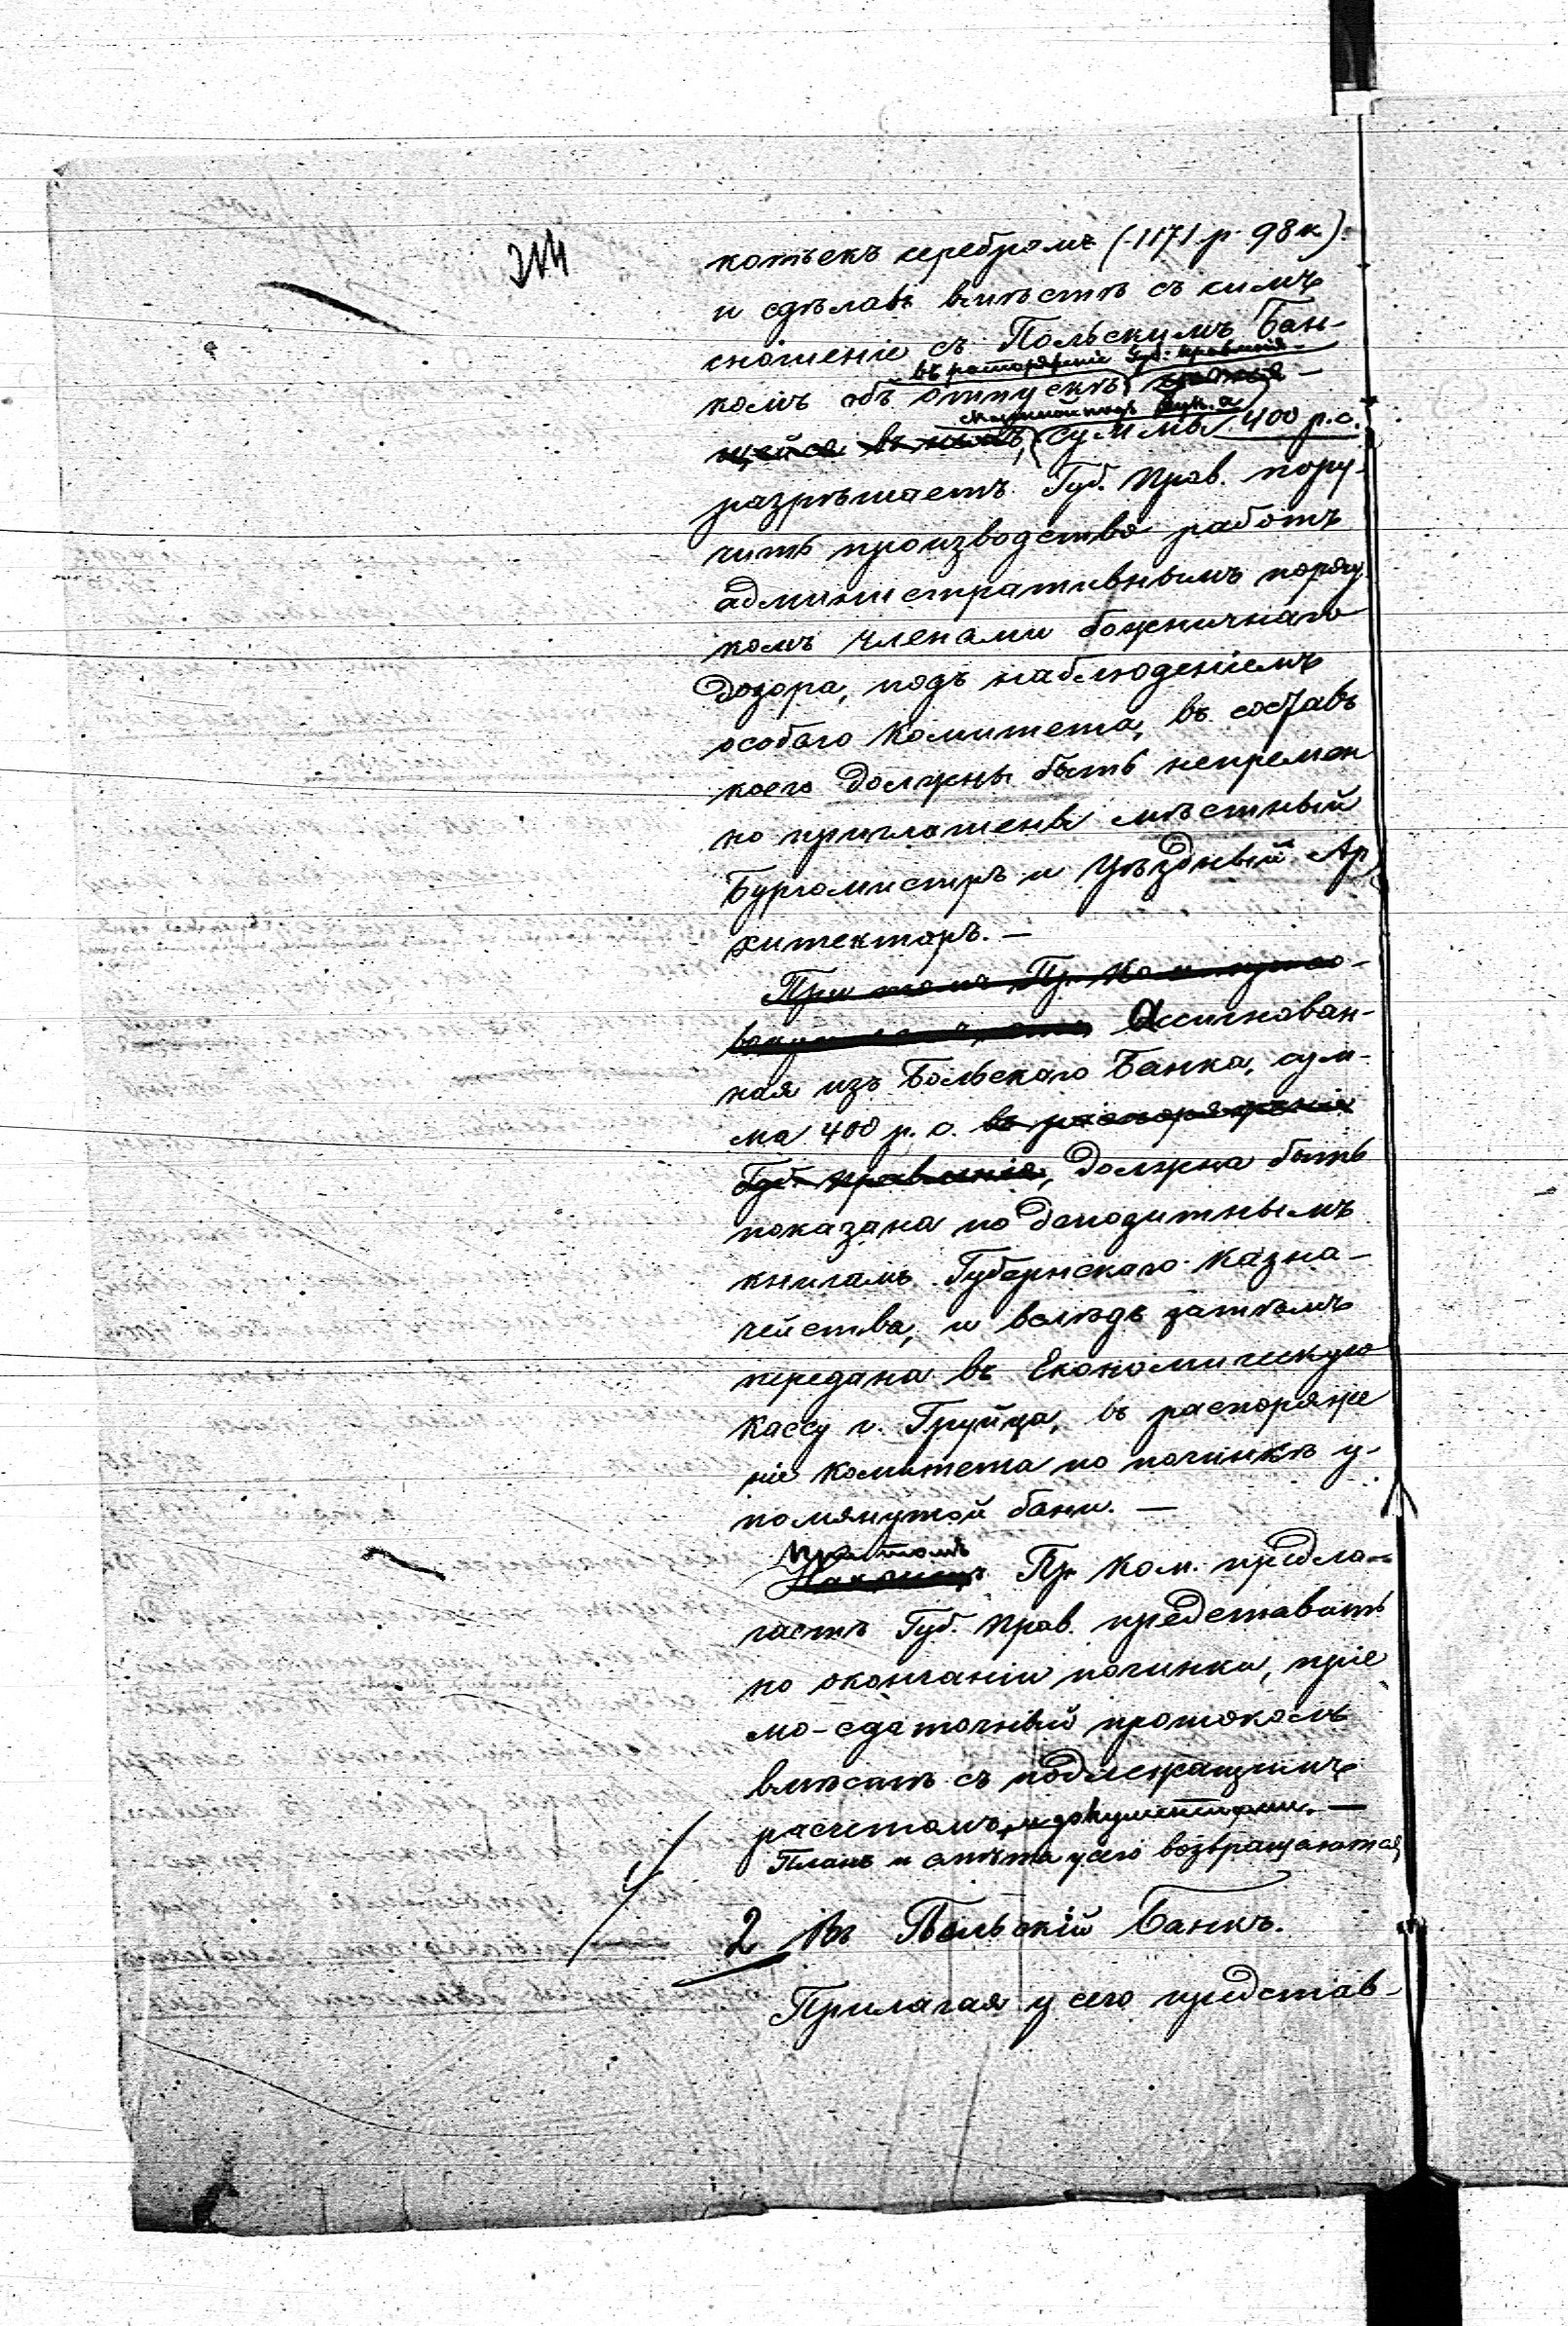 214
копѣекъ серебромъ (1171 р. 98 к.)
и сдѣлавъ вмѣстѣ съ симъ
сношеніе съ Польскимъ Бан-
въ распоряженіе Губ. правленія
комъ объ отпускѣ храня-
щейся въ немъ, суммы 400 р. с.
разрѣшаетъ Губ. Прав. пору-
чить производство работъ
административнымъ поряд
комъ членами божничнаго
Дозора, подъ наблюденіемъ
особаго Комитета, въ составъ
коего должны быть непремѣн
но приглашены мѣстный
Бургомистръ и Уѣздный Ар
хитекторъ. —
При томъ Пр. Ком.
Ассигнован-
ная изъ Польскаго Банка, сум-
ма 400 р. с. въ распоряженіе
Губ. правленія, должна быть
показана по депозитнымъ
книгамъ Губернскаго Казна-
чейства, и вслѣдъ затѣмъ
передана въ Економическую
Кассу г. Груйца, въ распоряже
ніе Комитета по починкѣ у-
помянутой бани. —
При томъ
Наконецъ Пр. Ком. предла-
гаетъ Губ. Прав. представить
по окончаніи починки, пріе
мо-сдаточный протоколъ
вмѣстѣ съ подлежащимъ
расчетомъ и документами. —
Планъ и смѣта у сего возвращаются
2 Въ Польскій Банкъ.
Прилагая у сего представ-